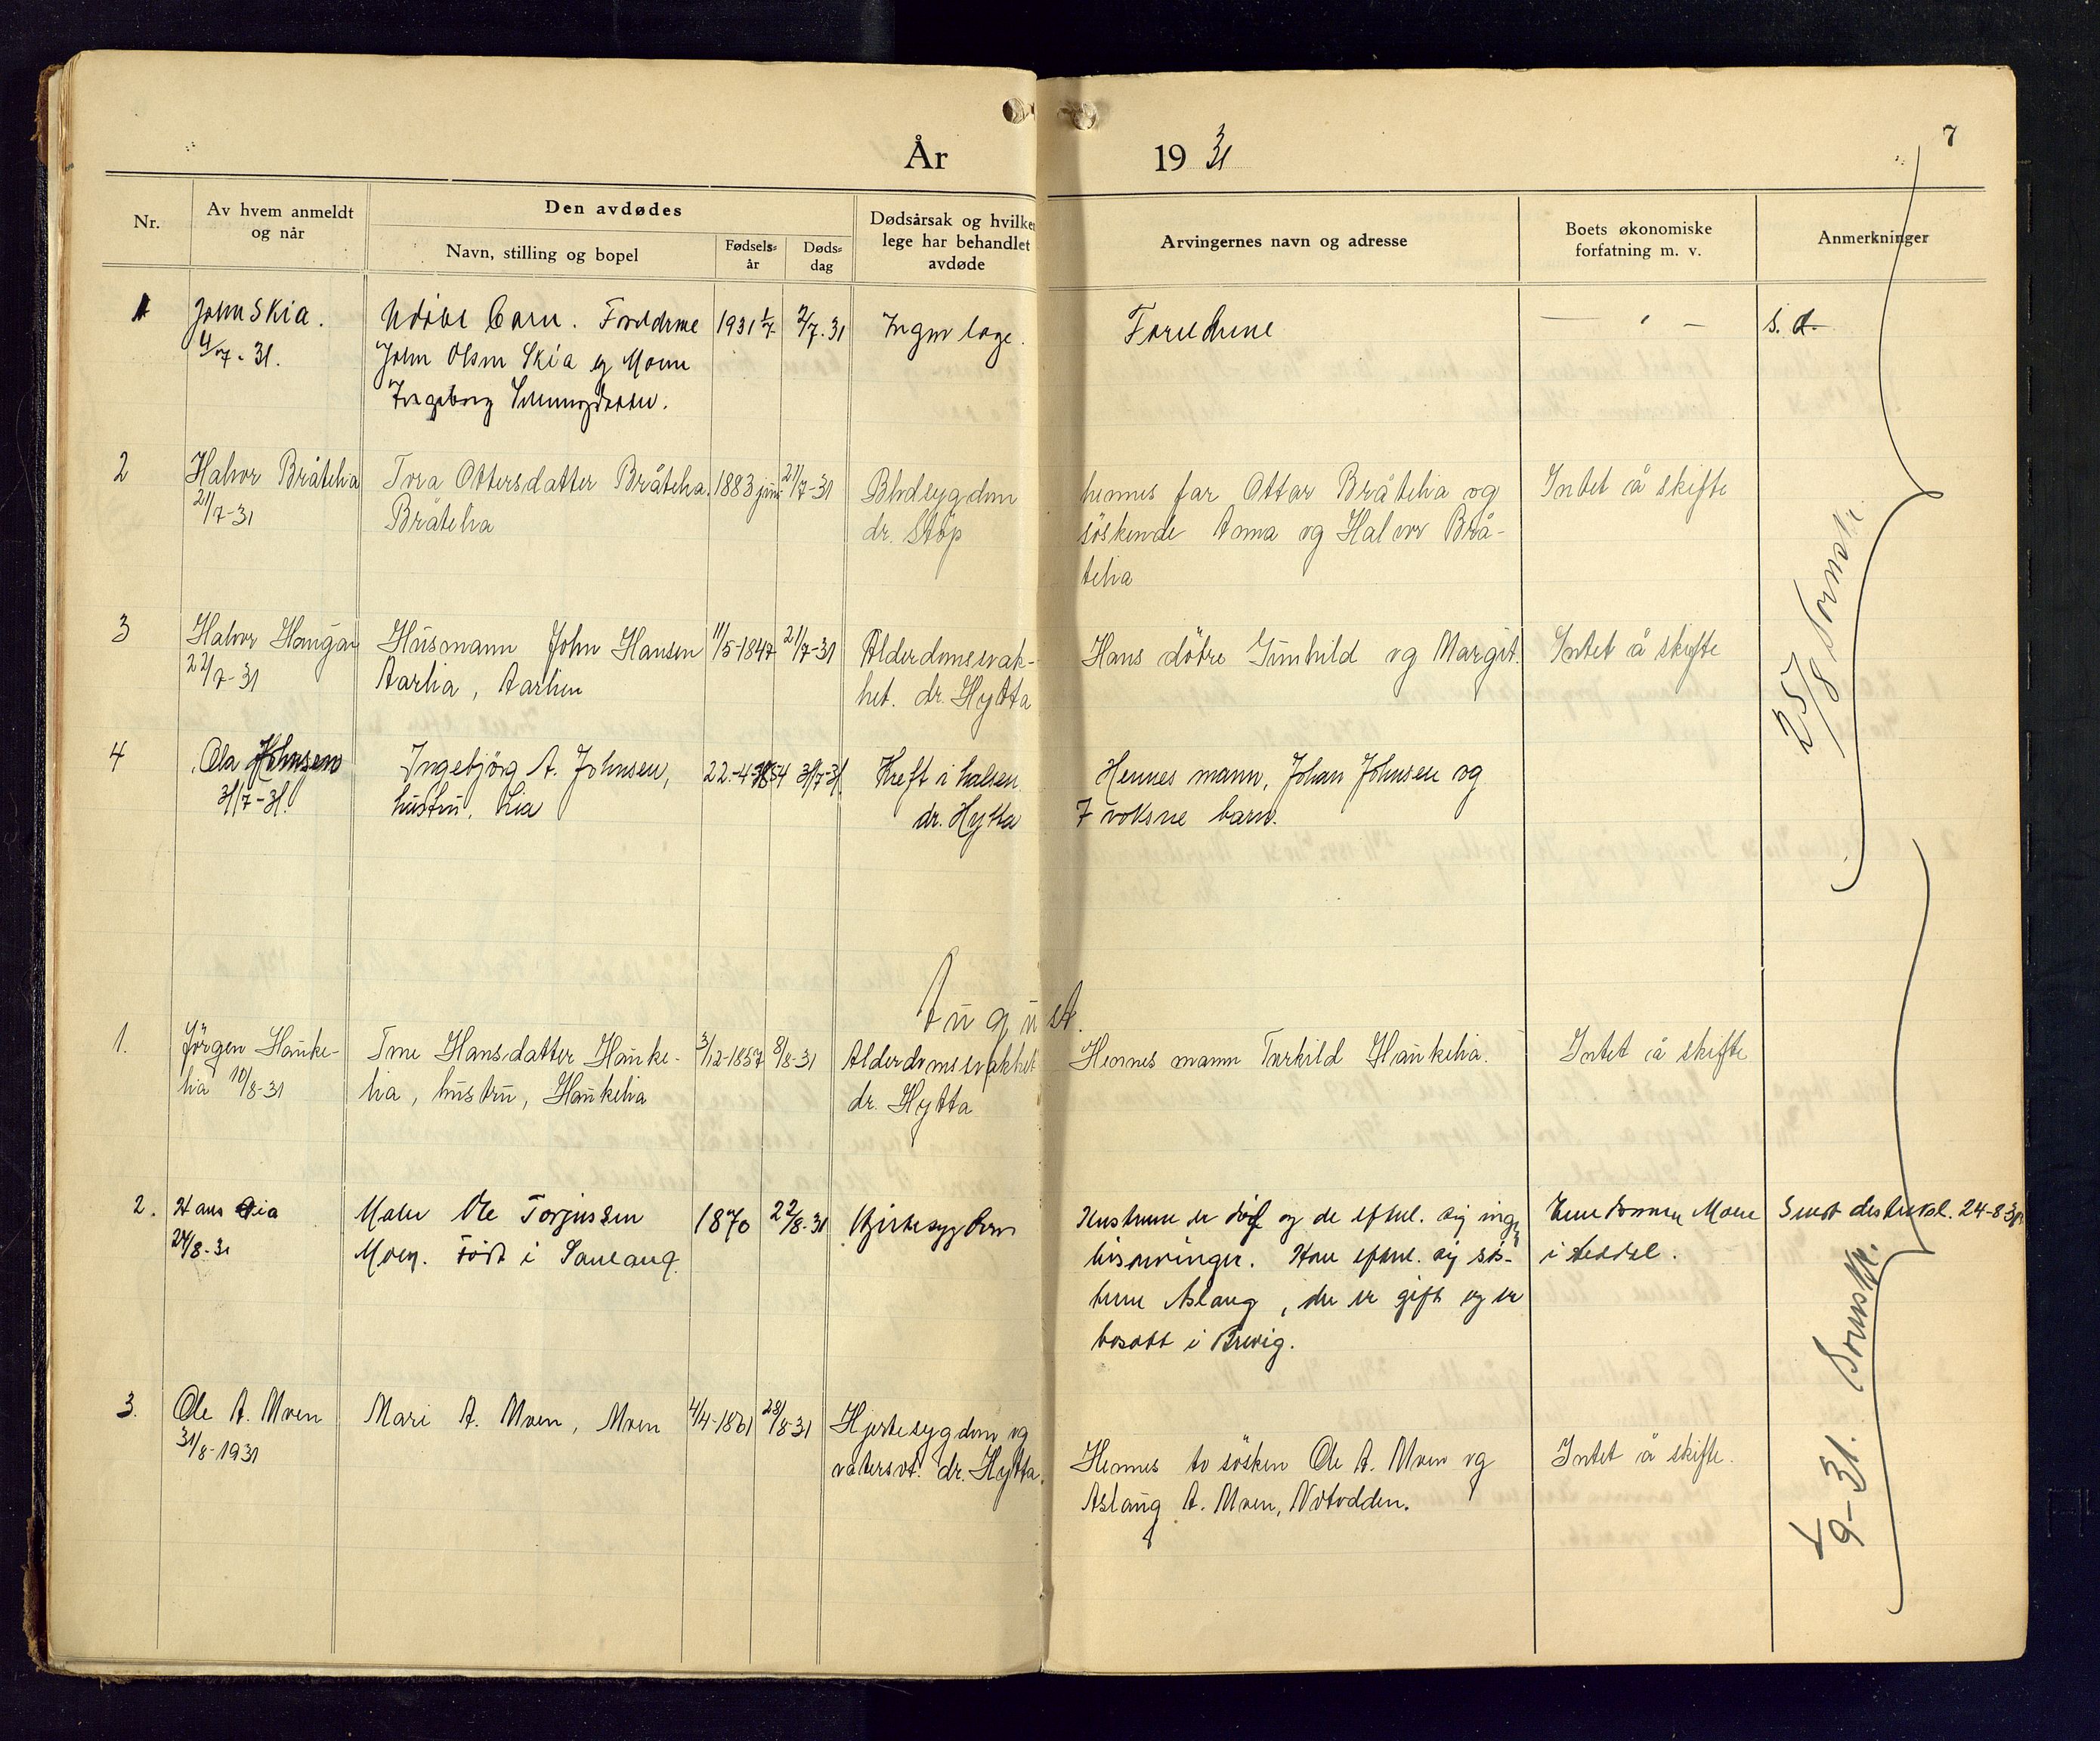 7
År 1931
Nr.
Av hvem anmeldt
og når
Den avdødes
Navn, stilling og bopel
Fødsels-
år
Døds-
dag
Dødsårsak og hvilken
lege har behandlet
avdøde
Arvingernes navn og adresse
Boets økonomiske
forfatning m. v.
Anmerkninger
1
John Skia.
4/7-31.
Udöbt barn. Foreldrene
John Olsen Skia og Moen
Ingeborg
1931 1/7
2/7-31
Ingen læge.
Foreldrene
s. d.
2
Halvor Bråtelia
21/7-31
Tora Ottersdatter Bråtelia.
Bråtelia
1883 juni
21/7-31
Blodsygdom
dr. Stöp
hennes far Ottar Bråtelia og
söskende Anna og Halvor Brå-
telia
Intet å skifte
3
Halvor Haugan
22/7-31
Husmann John Hansen
Aarlia, Aarlien
11/5-1847
21/7-31
Alderdomssvak-
het. dr. Hytta
Hans dötre Gunhild og Margit.
Intet å skifte
25/8
4
Ola Johnsen
31/7-31.
Ingebjörg A. Johnsen,
hustru, Lia
22-4-1854
31/7-31
Kreft i halsen.
dr. Hytta
Hennes mann, Johan Johnsen og
7 voksne barn.
August.
1.
Jörgen Hauke-
lia 10/8-31
Tone Hansdatter Hauke-
lia, hustru, Haukelia
3/12-1857
8/8-31
Alderdomssvakhet
dr. Hytta
Hennes mann Torkild Haukelia.
Intet å skifte
2.
Hans Lia
24/8-31
Maler Ole Torjussen
Moen. Född i Sauland.
1870
22/8-31
Hjertesygdom
Hustruen er död og de efterl. sig ingen
livsarvinger. Han efterl. sig sös-
teren Aslaug, der er gift og er
bosatt i Brevig.
Eiendommen Moen
i Heddal.
Sendt desherval. 24-8-31
3.
Ole A. Moen
31/8-1931
Mari A. Moen, Moen
4/4-1861
28/8-31
Hjertesygdom og
vatersot. dr. Hytta.
Hennes to sösken Ole A. Moen og
Aslaug A. Moen, Notodden.
Intet å skifte.
1/9-31. Sorensk.